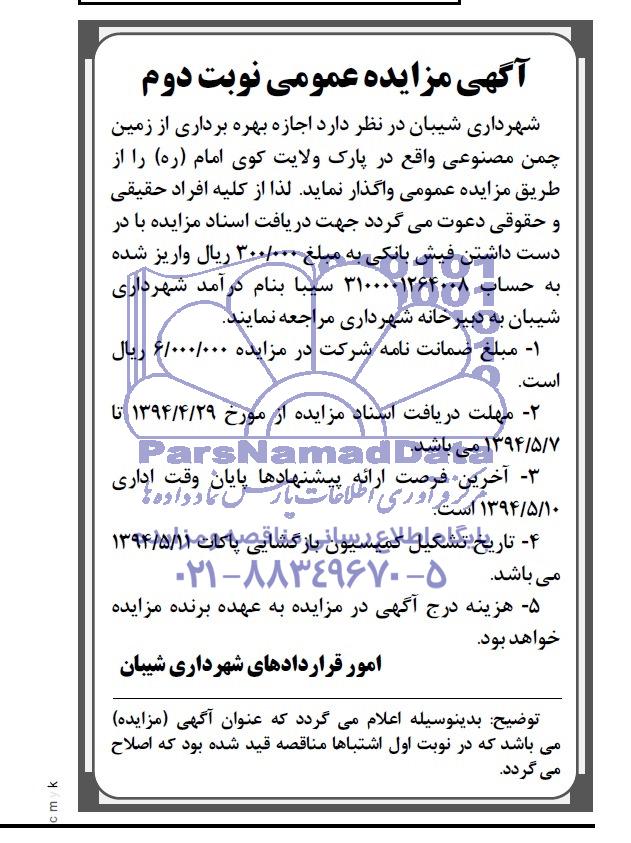 آگهی مزایده عمومی نوبت دوم
شهرداری شیبان در نظر دارد اجازه بهره برداری از زمین
چمن مصنوعی واقع در پارک ولایت کوی امام (ره) را از
طریق مزایده عمومی واگذار نماید. لذا از کلیه افراد حقیقی
و حقوقی دعوت می گردد جهت دریافت اسناد مزایده با در
دست داشتن فیش بانکی به مبلغ ۳۰۰/۰۰۰ ریال واریز شده
به حساب ۳۱۰۰۰۰۱۲۶۴۰۰۸ سیبا بنام درآمد شهرداری
شیبان به دبیرخانه شهرداری مراجعه نمایند.
۱- مبلغ ضمانت نامه شرکت در مزایده ۶/۰۰۰/۰۰۰ ریال
است.
۲- مهلت دریافت اسناد مزایده از مورخ ۱۳۹۴/۴/۲۹ تا
۱۳۹۴/۵/۷ می باشد.
ParsNamadData
۳- آخرین فرصت ارائه پیشنهادها پایان وقت اداری
مرکز فرآوری اطلاعات پارس نماد داده ها
۱۳۹۴/۵/۱۰ است.
پایگاه اطلاع رسانی مناقصه و مزایده
۴- تاریخ تشکیل کمیسیون بازگشایی پاکات ۱۳۹۴/۵/۱۱
می باشد.
۰۲۱-۸۸۳۴۹۶۷۰-۵
۵- هزینه درج آگهی در مزایده به عهده برنده مزایده
خواهد بود.
امور قراردادهای شهرداری شیبان
توضیح: بدینوسیله اعلام می گردد که عنوان آگهی (مزایده)
می باشد که در نوبت اول اشتباها مناقصه قید شده بود که اصلاح
می گردد.
cmyk